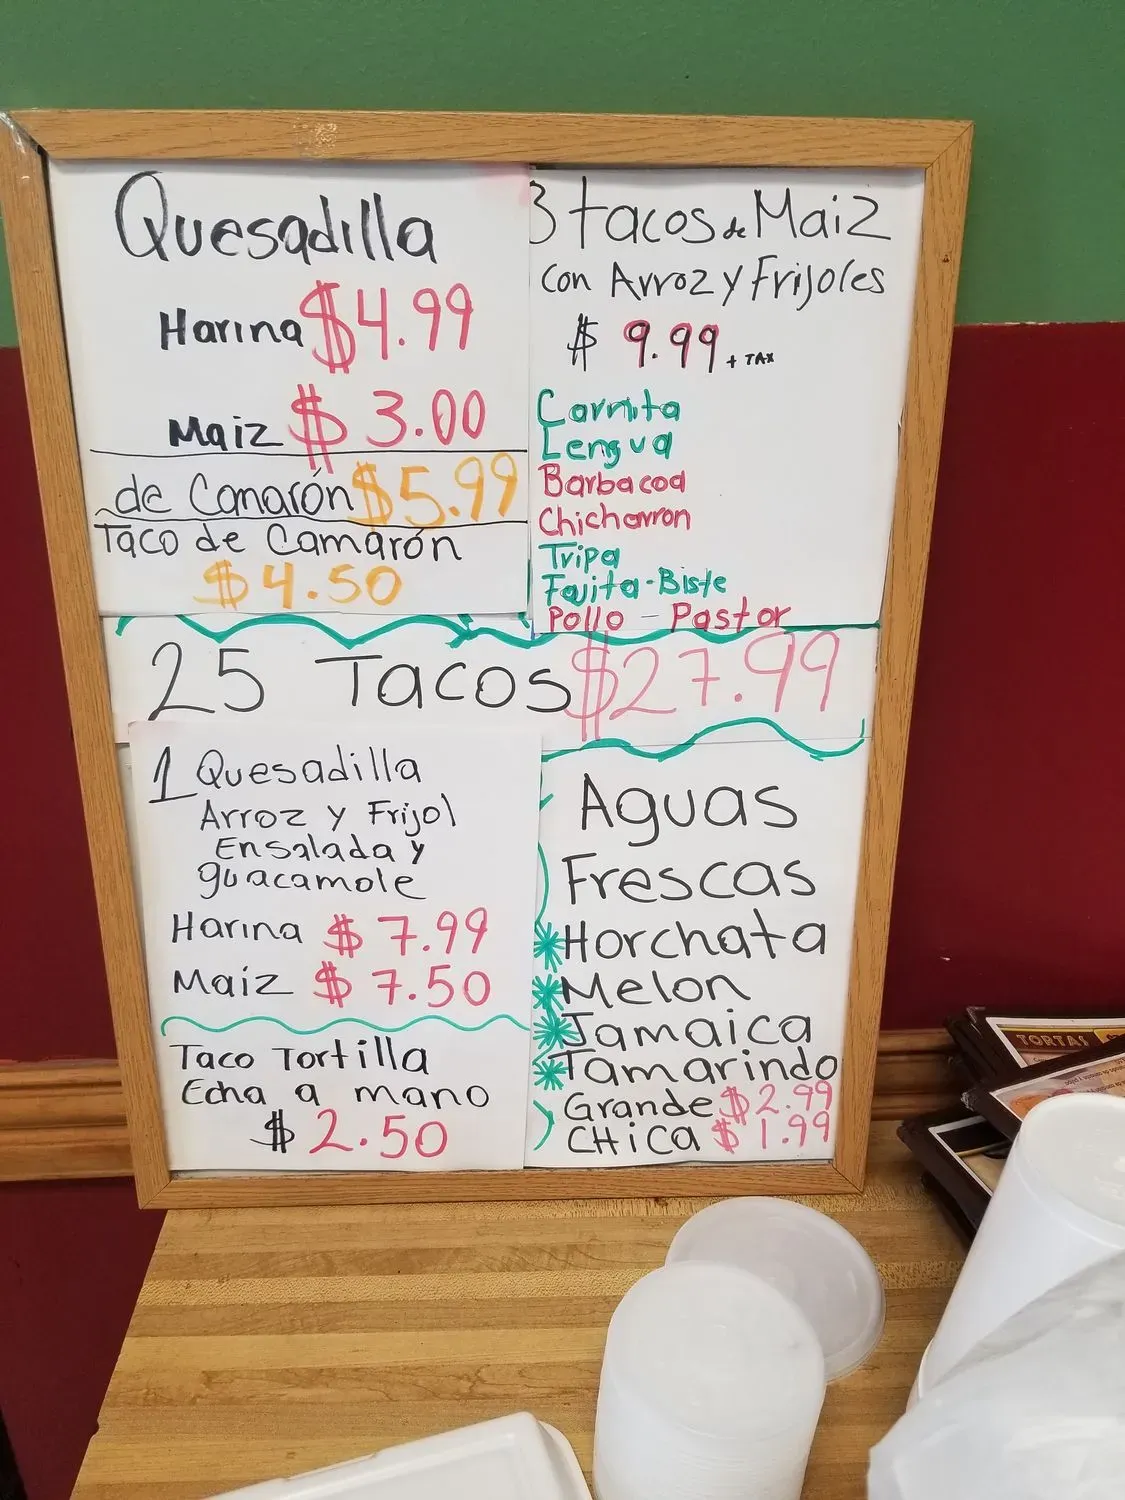 Quesadilla
Harina $4.99
Maiz $3.00
de Camarón $5.99
Taco de Camarón
$4.50
3 tacos de Maiz
con Arroz y Frijoles
$ 9.99 + TAX
Carnita
Lengua
Barbacoa
Chicharron
Tripa
Fajita-Biste
Pollo - Pastor
25 Tacos $27.99
1 Quesadilla
Arroz y Frijol
Ensalada y
guacamole
Harina $7.99
Maiz $7.50
Taco Tortilla
Echa a mano
$2.50
Aguas
Frescas
*Horchata
*Melon
*Jamaica
*Tamarindo
Grande $2.99
CHiCa $1.99
TORTAS